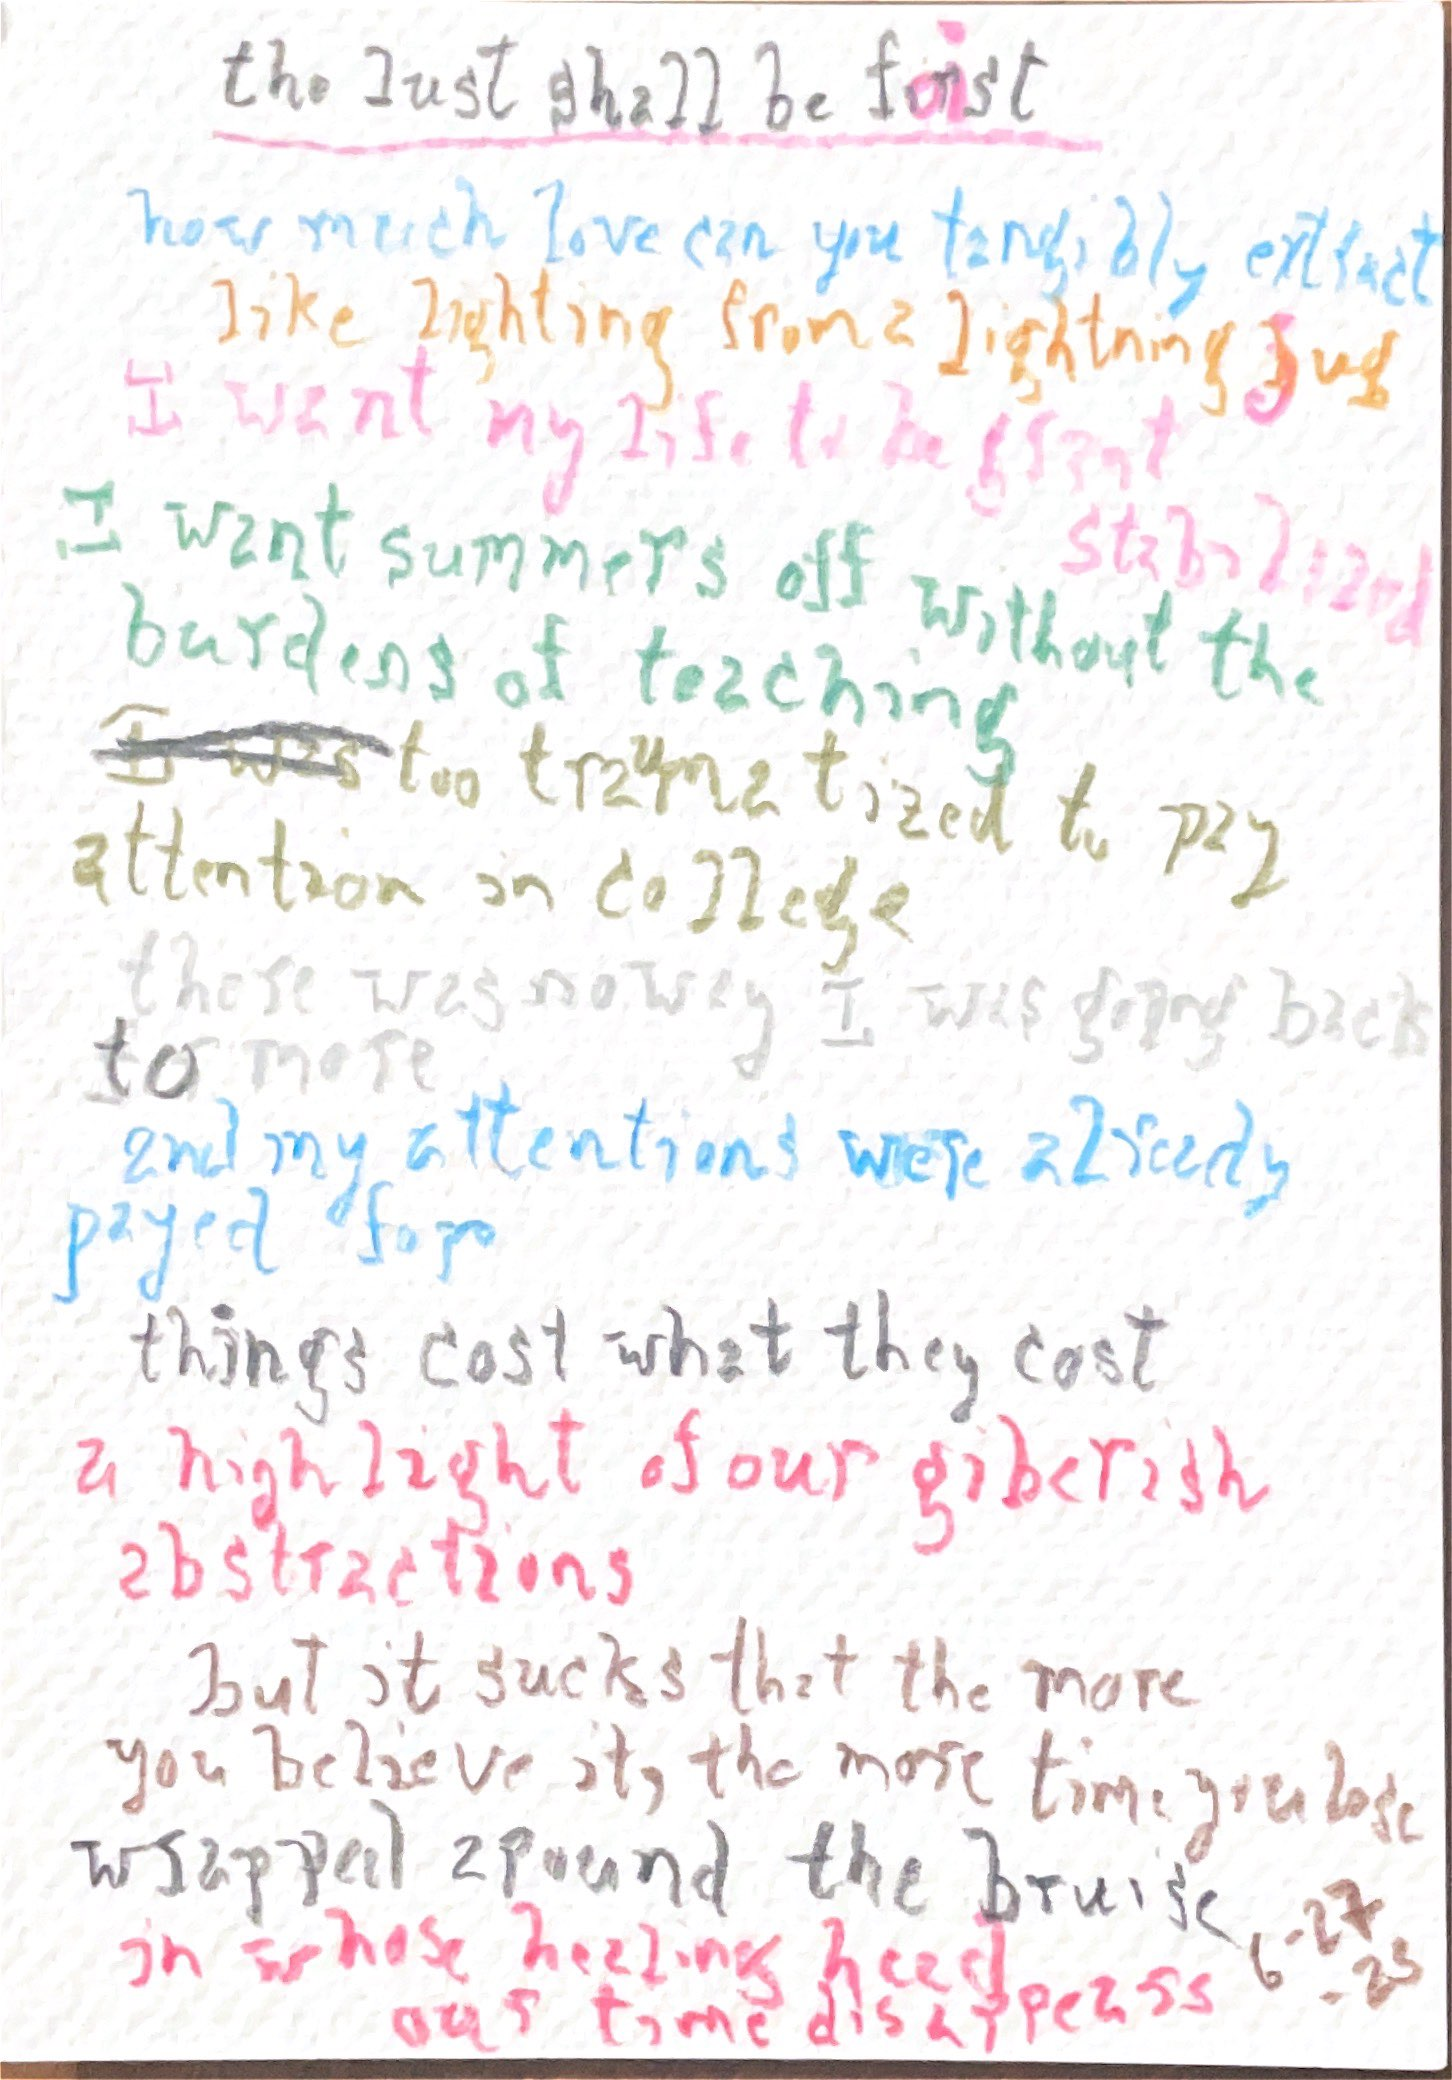 the lust shall be foist
how much love can you tangibly extract
like lighting from a lightning jug
I want my life to be grant
stabilized
I want summers off without the
burdens of teaching
I was too traumatized to pay
attention in college
there was no way I was going back
to more
and my attentions were already
payed for
things cost what they cost
a highlight of our giberish
abstractions
but it sucks that the more
you believe it, the more time you lose
wrapped around the bruise
in whose healing head
our time disappears
6-27
-25